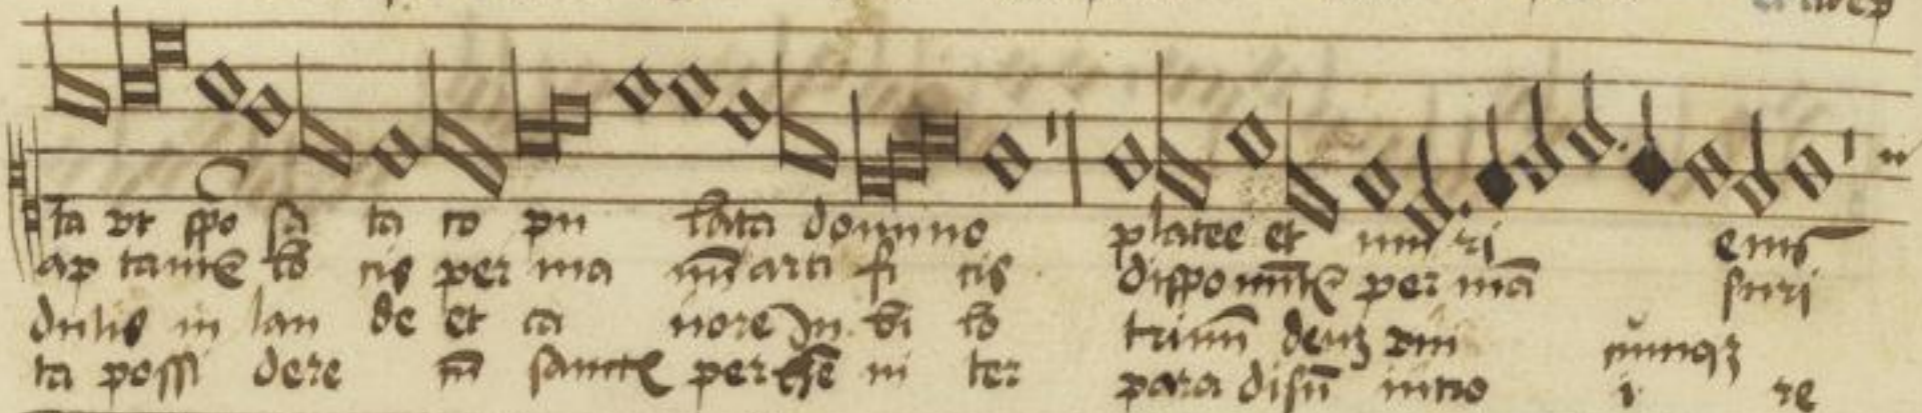 ta vt spo sa ta co pu lata domino platee et mu ri eius
ap tant᷑ lo cis per ma nū arti fi cis disponūt᷑ per mā suri
dulis in lau de et ca nore Jn bi lo trinū deuȝ vni cumqȝ
ta possi dere cū sanctꝭ perhē ni ter para disū intro i re